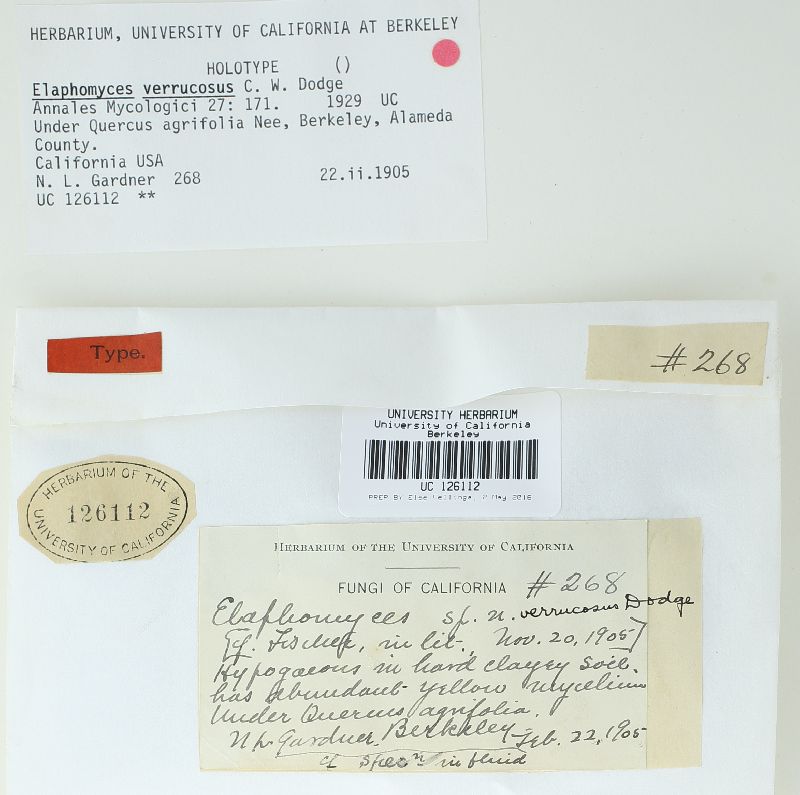 HERBARIUM, UNIVERSITY OF CALIFORNIA AT BERKELEY
HOLOTYPE ()
Elaphomyces verrucosus C. W. Dodge
Annales Mycologici 27: 171. 1929 UC
Under Quercus agrifolia Nee, Berkeley, Alameda
County.
California USA
N. L. Gardner 268 22.ii.1905
UC 126112 **
Type.
#268
UNIVERSITY HERBARIUM
University of California
Berkeley
UC 126112
PREP BY Else Vellinga, 2 May 2016
HERBARIUM OF THE
126112
UNIVERSITY OF CALIFORNIA
HERBARIUM OF THE UNIVERSITY OF CALIFORNIA
FUNGI OF CALIFORNIA #268
Elaphomyces sp. n. verrucosus Dodge
Fischer, in lit., Nov. 20, 1905]
Hypogaeous in hard clayey soil.
has abundant yellow mycelium
Under Quercus agrifolia.
Gardner, Berkeley Feb. 22, 1905
cf in fluid